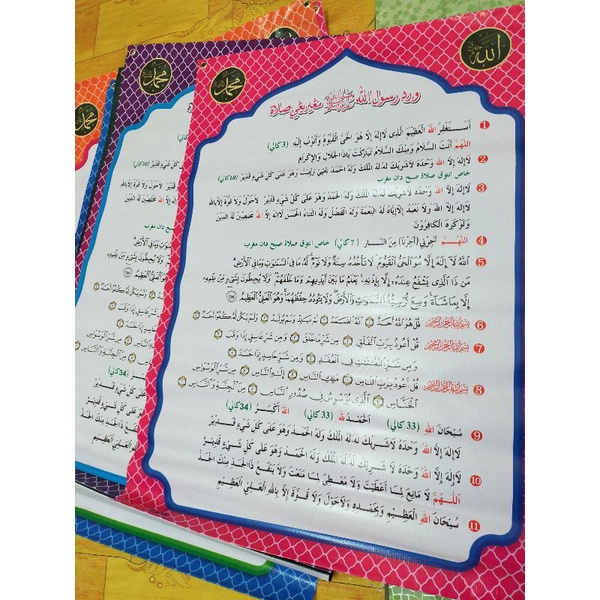 الله
محمد
ورد رسول الله ﷺ مڠيريڠي صلاة
1 أَسْتَغْفِرُ اللهَ الْعَظِيْمَ الَّذِي لَا إِلَهَ إِلَّا هُوَ الْحَيُّ الْقَيُّوْمُ وَأَتُوْبُ إِلَيْهِ (3 كالي)
اللَّهُمَّ أَنْتَ السَّلَامُ وَمِنْكَ السَّلَامُ تَبَارَكْتَ يَاذَا الْجَلَالِ وَالْإِكْرَامِ
2 لَا إِلَهَ إِلَّا اللهُ وَحْدَهُ لَا شَرِيْكَ لَهُ لَهُ الْمُلْكُ وَلَهُ الْحَمْدُ يُحْيِيْ وَيُمِيْتُ وَهُوَ عَلَى كُلِّ شَيْءٍ قَدِيْرٌ (10 كالي)
خاص انتوق صلاة صبح دان مغرب
3 لَا إِلَهَ إِلَّا اللهُ وَحْدَهُ لَا شَرِيْكَ لَهُ لَهُ الْمُلْكُ وَلَهُ الْحَمْدُ وَهُوَ عَلَى كُلِّ شَيْءٍ قَدِيْرٌ لَا حَوْلَ وَلَا قُوَّةَ إِلَّا بِاللهِ
لَا إِلَهَ إِلَّا اللهُ وَلَا نَعْبُدُ إِلَّا إِيَّاهُ لَهُ النِّعْمَةُ وَلَهُ الْفَضْلُ وَلَهُ الثَّنَاءُ الْحَسَنُ لَا إِلَهَ إِلَّا اللهُ مُخْلِصِيْنَ لَهُ الدِّيْنَ
وَلَوْ كَرِهَ الْكَافِرُوْنَ
4 اللَّهُمَّ أَجِرْنِي (أَجِرْنَا) مِنَ النَّارِ (7 كالي) خاص انتوق صلاة صبح دان مغرب
5 اللهُ لَا إِلَهَ إِلَّا هُوَ الْحَيُّ الْقَيُّوْمُ لَا تَأْخُذُهُ سِنَةٌ وَلَا نَوْمٌ لَهُ مَا فِي السَّمَوَاتِ وَمَا فِي الْأَرْضِ
مَنْ ذَا الَّذِي يَشْفَعُ عِنْدَهُ إِلَّا بِإِذْنِهِ يَعْلَمُ مَا بَيْنَ أَيْدِيْهِمْ وَمَا خَلْفَهُمْ وَلَا يُحِيْطُوْنَ بِشَيْءٍ مِنْ عِلْمِهِ
إِلَّا بِمَا شَاءَ وَسِعَ كُرْسِيُّهُ السَّمَوَاتِ وَالْأَرْضَ وَلَا يَئُوْدُهُ حِفْظُهُمَا وَهُوَ الْعَلِيُّ الْعَظِيْمُ
6 بسم الله الرحمن الرحيم قُلْ هُوَ اللهُ أَحَدٌ اللهُ الصَّمَدُ لَمْ يَلِدْ وَلَمْ يُوْلَدْ وَلَمْ يَكُنْ لَهُ كُفُوًا أَحَدٌ
7 بسم الله الرحمن الرحيم قُلْ أَعُوْذُ بِرَبِّ الْفَلَقِ مِنْ شَرِّ مَا خَلَقَ وَمِنْ شَرِّ غَاسِقٍ إِذَا وَقَبَ
وَمِنْ شَرِّ النَّفَّاثَاتِ فِي الْعُقَدِ وَمِنْ شَرِّ حَاسِدٍ إِذَا حَسَدَ
8 بسم الله الرحمن الرحيم قُلْ أَعُوْذُ بِرَبِّ النَّاسِ مَلِكِ النَّاسِ إِلَهِ النَّاسِ مِنْ شَرِّ الْوَسْوَاسِ
الْخَنَّاسِ الَّذِي يُوَسْوِسُ فِي صُدُوْرِ النَّاسِ مِنَ الْجِنَّةِ وَالنَّاسِ
9 سُبْحَانَ اللهِ (33 كالي) الْحَمْدُ لِلهِ (33 كالي) اللهُ أَكْبَرُ (34 كالي)
لَا إِلَهَ إِلَّا اللهُ وَحْدَهُ لَا شَرِيْكَ لَهُ لَهُ الْمُلْكُ وَلَهُ الْحَمْدُ وَهُوَ عَلَى كُلِّ شَيْءٍ قَدِيْرٌ
10 لَا إِلَهَ إِلَّا اللهُ وَحْدَهُ لَا شَرِيْكَ لَهُ لَهُ الْمُلْكُ وَلَهُ الْحَمْدُ وَهُوَ عَلَى كُلِّ شَيْءٍ قَدِيْرٌ
اللَّهُمَّ لَا مَانِعَ لِمَا أَعْطَيْتَ وَلَا مُعْطِيَ لِمَا مَنَعْتَ وَلَا يَنْفَعُ ذَا الْجَدِّ مِنْكَ الْجَدُّ
11 سُبْحَانَ اللهِ الْعَظِيْمِ وَبِحَمْدِهِ وَلَا حَوْلَ وَلَا قُوَّةَ إِلَّا بِاللهِ الْعَلِيِّ الْعَظِيْمِ
محمد
محمد